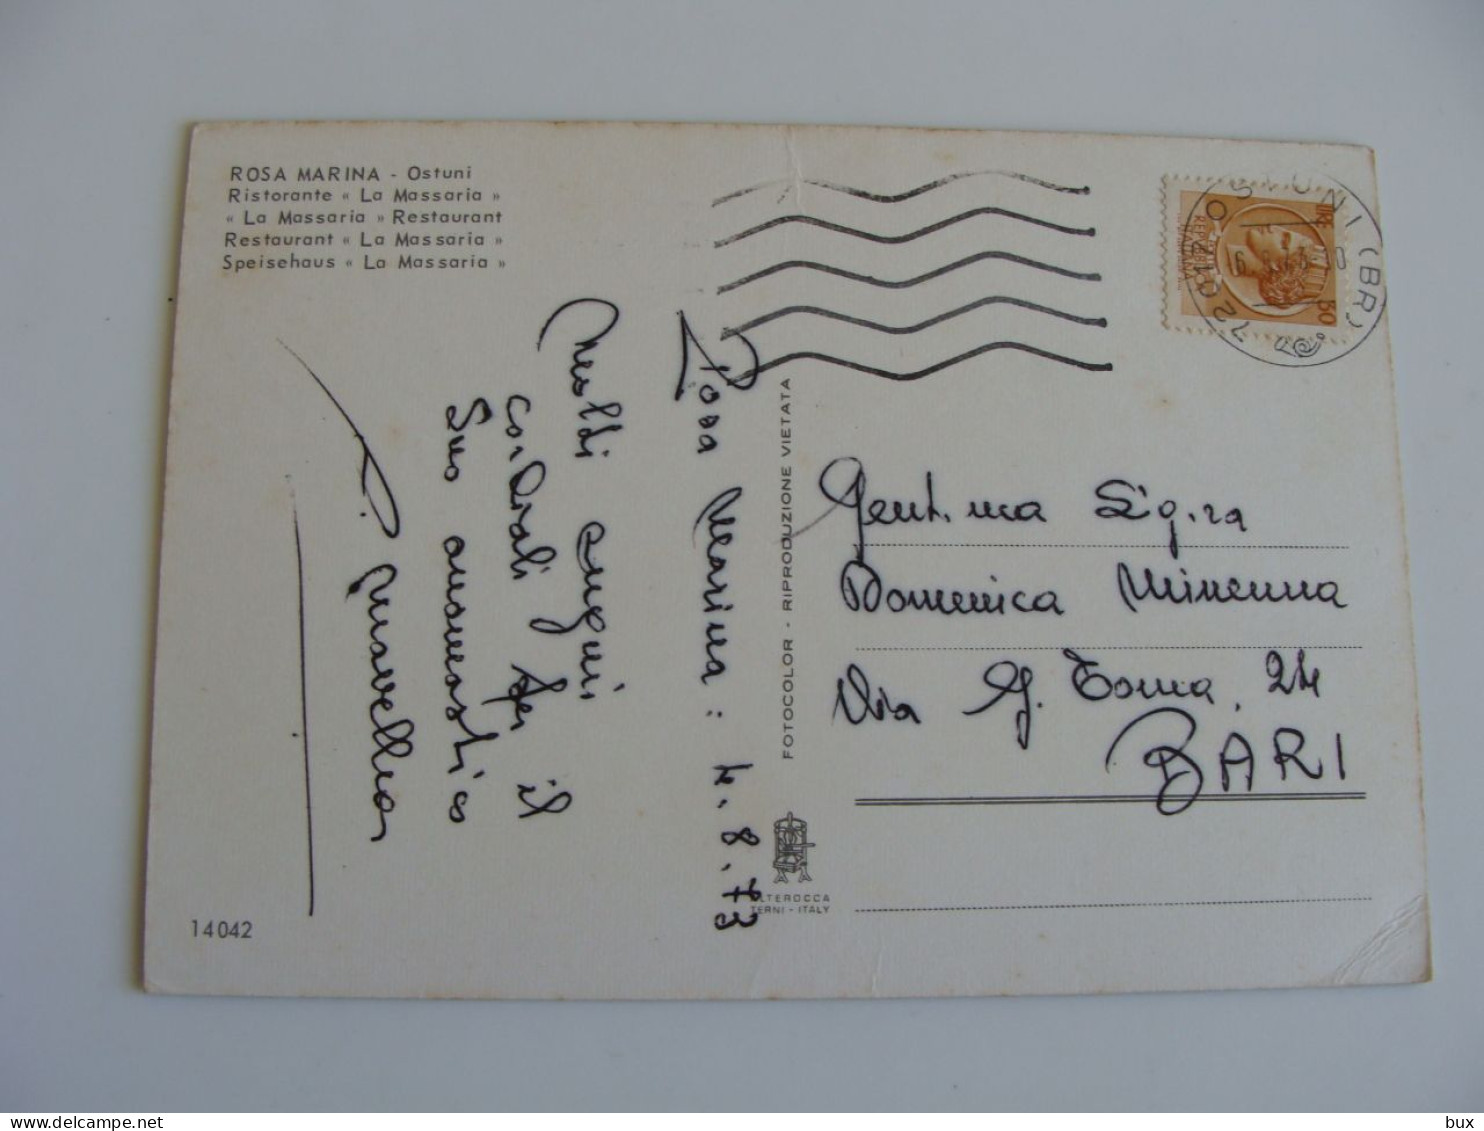 ROSA MARINA - Ostuni
Ristorante « La Massaria »
« La Massaria » Restaurant
Restaurant « La Massaria »
Speisehaus « La Massaria »
Rosa Marina: 4.8.73
Molti auguri
cordiali per il
Suo onomastico
14042
FOTOCOLOR - RIPRODUZIONE VIETATA
ALTEROCCA
TERNI - ITALY
72017 OSTUNI (BR)
LIRE 50
Gent.ma Sig.ra
Domenica Minenna
Via G. Toma, 24
BARI
bux